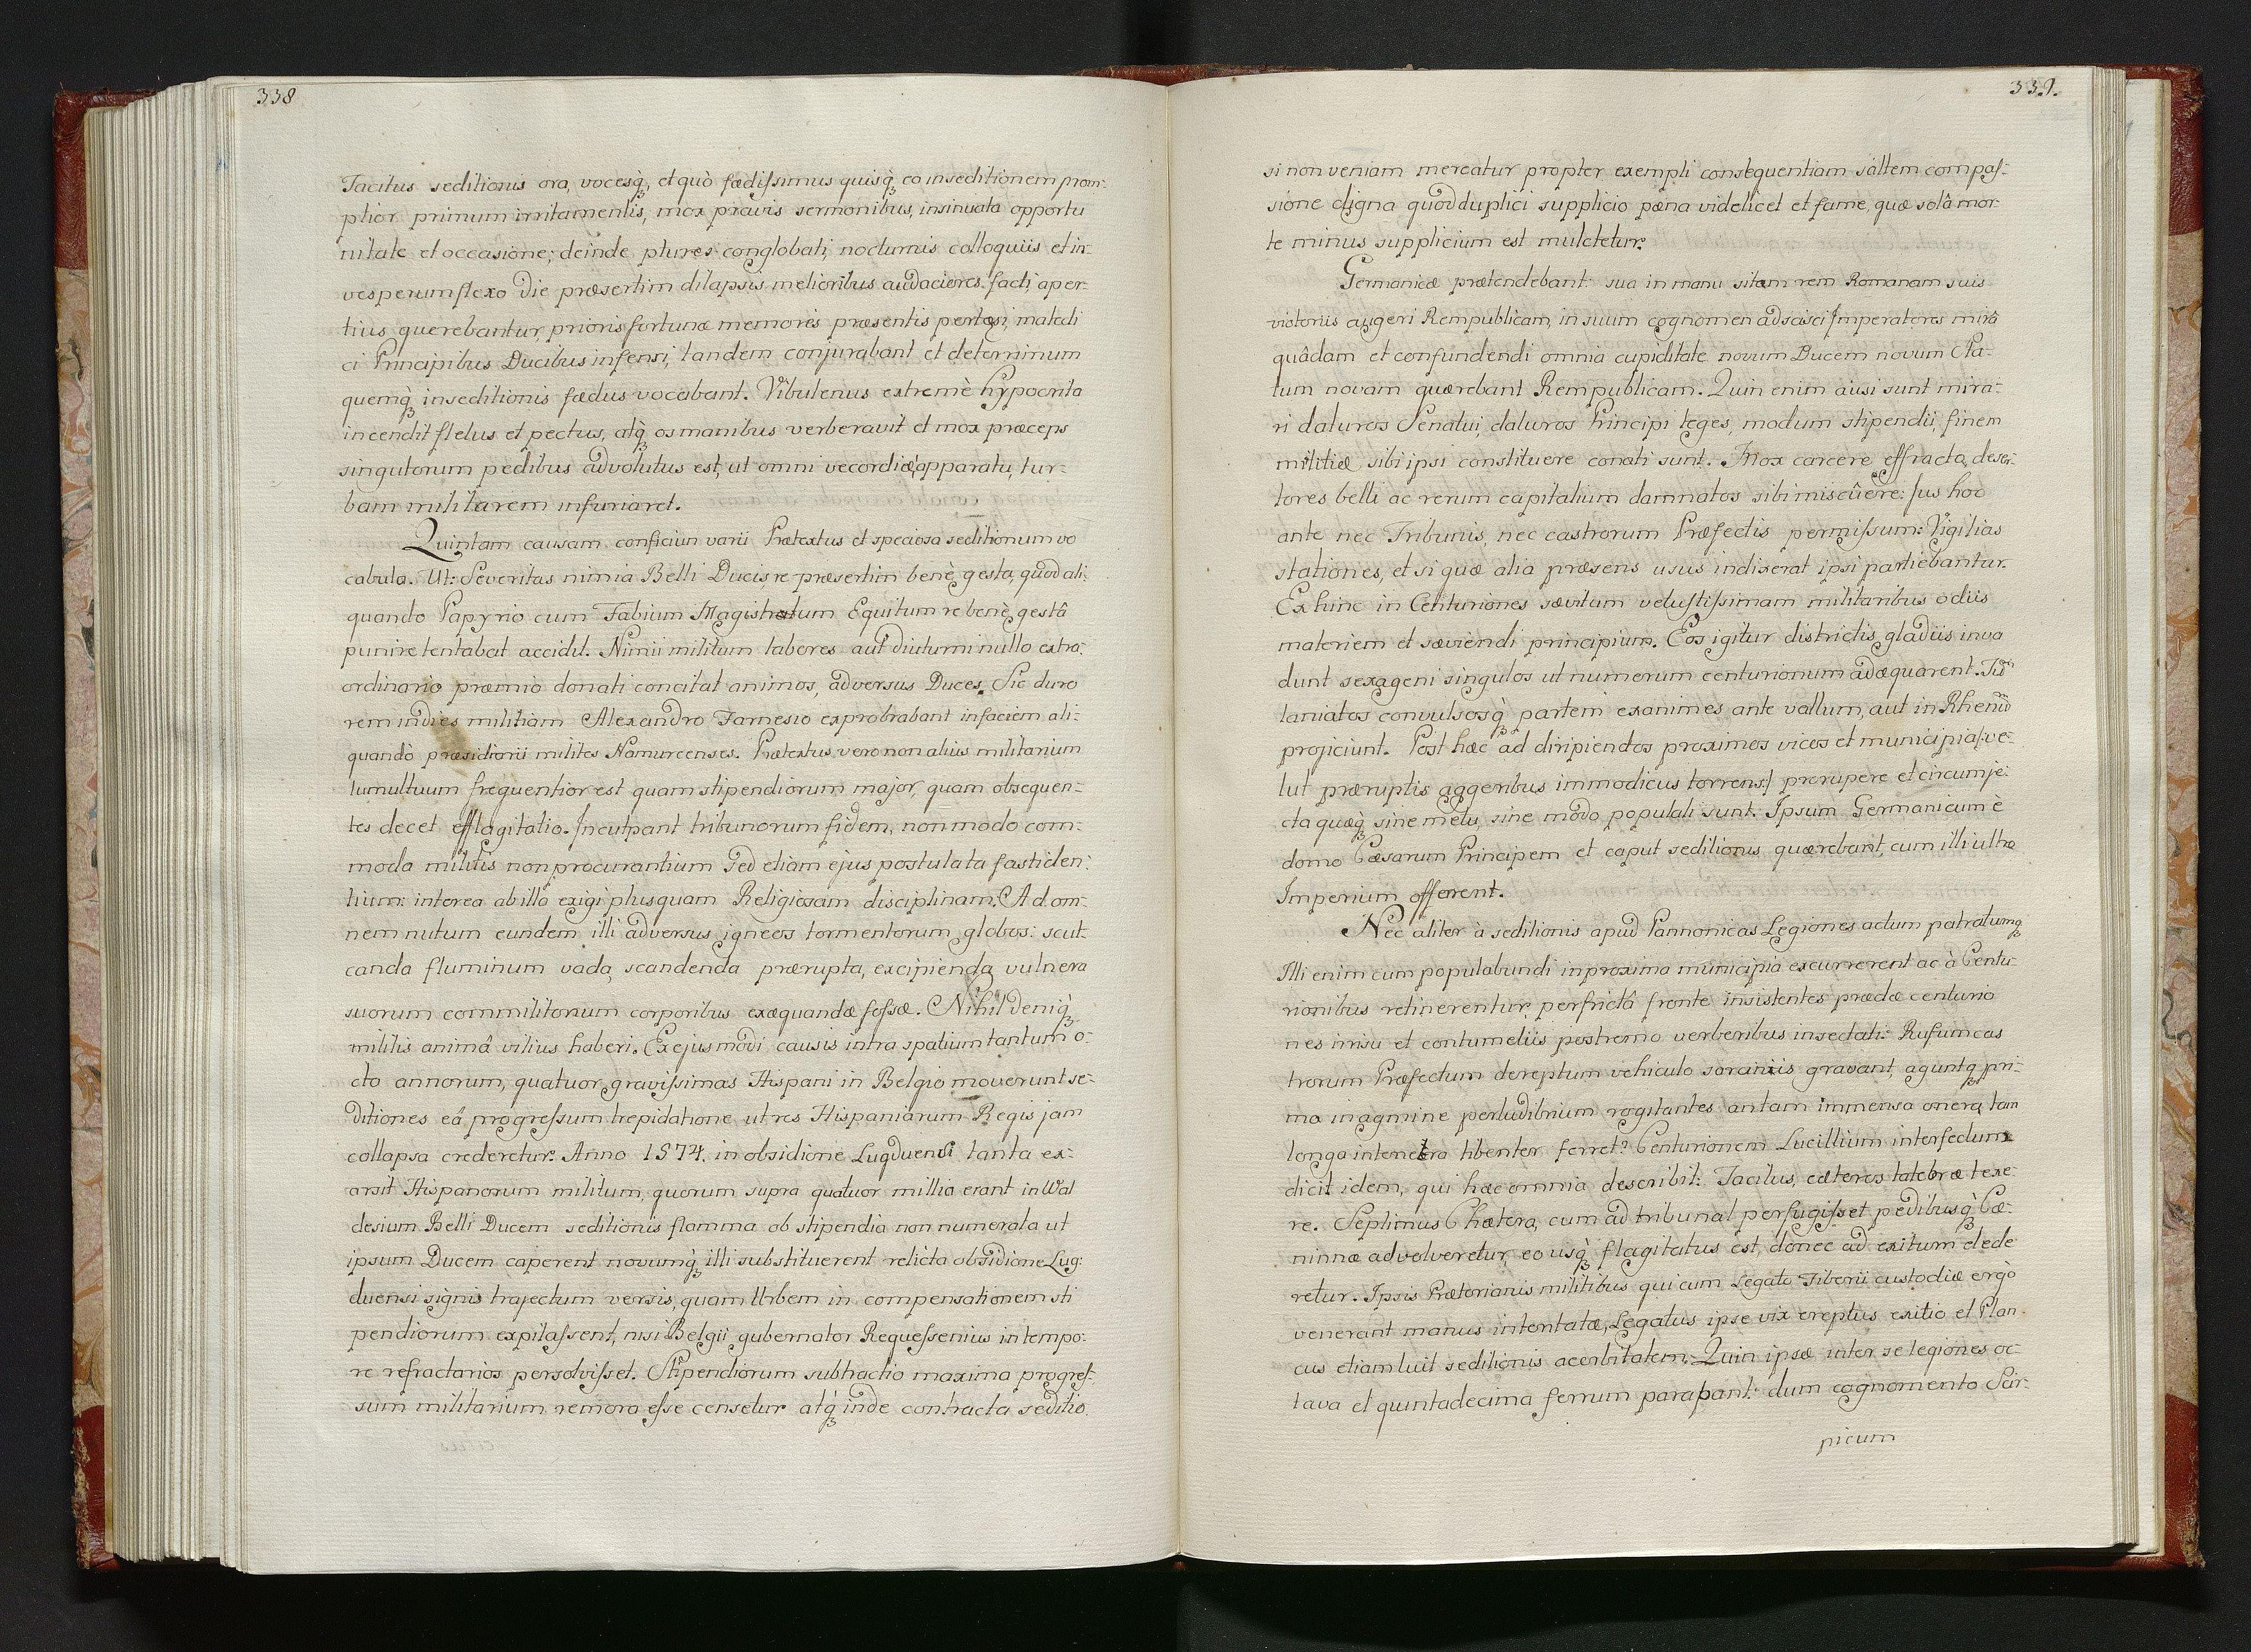 338
Tacitus seditionis ora, vocesq̀ꝫ, et quò fædissimus quisq̀ꝫ eo in seditionem prom-
ptior primum irritamentis, mox pravis sermonibus, insinuata opportu
nitate et occasione; deinde plures conglobati, nocturnis colloquiis et in-
vesperum flexo die præsertim dilapsis melioribus audaciores facti aper-
tius querebantur, prioris fortunæ memores præsentis pertæsi, maledi
ci Principibus Ducibus infensi, tandem conjurabant et deterrimum
quemq̀ꝫ in seditionis fædus vocabant. Vibulenus extremè hypocrita
incendit fletus et pectus, atq̀ꝫ os manibus verberavit et mox præceps
singulorum pedibus advolutus est, ut omni vecordiæ apparatu, tur-
bam militarem infuriaret.
Quintam causam conficiun varii Prætextus et speciosa seditionum vo
cabula. Ut: Severitas nimia Belli Ducis re præsertim benè gesta, quod ali-
quando Papyrio cum Fabium Magistratum Equitum re benè gestâ
punire tentabat accidit. Nimii militum labores aut diuturni nullo extra-
ordinario præmio donati concitat animos, adversus Duces. Sic duro
rem indies militiam Alexandro Farnesio exprobrabant in faciem ali-
quandò præsidiorii milites Namurcenses. Prætextus vero non alius militarium
tumultuum frequentior est quam stipendiorum major, quam obsequen-
tes decet efflagitatio. Inculpant tribunorum fidem, non modo com-
moda militis non procurantium sed etiam ejus postulata fastiden-
tium: interea ab illo exigi plusquam Religiosam disciplinam. Ad om-
nem nutum eundem illi adversus igneos tormentorum globos: scut-
canda fluminum vada, scandenda prærupta, excipienda vulnera
suorum commilitonum corporibus exæquandæ fossæ. Nihil deniq̀ꝫ
militis animâ vilius haberi. Ex ejusmodi causis intra spatium tantum o-
cto annorum, quatuor gravissimas Hispani in Belgio moverunt se-
ditiones eâ progressum trepidatione ut res Hispaniarum Regis jam
collapsa crederetur. Anno 1574. in obsidione Lugduensi tanta ex-
arsit Hispanorum militum, quorum supra quatuor millia erant in Wal
desium Belli Ducem seditionis flamma ob stipendia non numerata ut
ipsum Ducem caperent novumq̀ꝫ illi substituerent relicta obsidione Lug-
duensi signis trajectum versis, quam Urbem in compensationem sti
pendiorum expilassent, nisi Belgii gubernator Requessenius in tempo-
re refractarios persolvisset. Stipendiorum subtractio maxima progres-
sum militarium remora esse censetur atq̀ꝫ inde contracta seditio
339.
si non veniam mereatur propter exempli consequentiam saltem compas-
sione digna quod duplici supplicio pæna videlicet et fame, quæ solâ mor-
te minus supplicium est mulctetur.
Germanicæ prætendebant: sua in manu sitam rem Romanam suis
victoriis augeri Rempublicam, in suum cognomen adscisci Imperatores mirâ
quâdam et confundendi omnia cupiditate novum Ducem novum Sta-
tum novam quærebant Rempublicam. Quin enim ausi sunt mira-
ri daturos Senatui, daturos Principi leges, modum stipendii, finem
militiæ sibi ipsi constituere conati sunt. Mox carcere effracto, deser-
tores belli ac rerum capitalium damnatos sibi miscûere: Jus hoc
ante nec Tribunis, nec castrorum Præfectis permissum: Vigilias
stationes, et si quæ alia præsens usus indixerat ipsi partiebantur.
Ex hinc in Centuriones sævitum vetustissimam militaribus odiis
materiem et sæviendi principium. Eos igitur districtis gladiis inva
dunt sexageni singulos ut numerum centurionum adæquarent.
laniatos convulsosq̀ꝫ partem exanimes ante vallum, aut in Rhenũ
projiciunt. Post hæc ad diripiendos proximos vicos et municipia /: ve-
lut præruptis aggeribus immodicus torrens :/ prorupere et circumje-
cta quæq̀ꝫ sine metu, sine modo populati sunt. Ipsum Germanicum è
domo Cæsarum Principem et caput seditionis quærebant, cum illi ultra
Imperium offerent.
Nec aliter à seditionis apud Pannonicas Legiones actum patratumqꝫ
Illi enim cum populabundi in proxima municipia excurrerent ac à Centu-
rionibus retinerentur, perfrictâ fronte insistentes prædæ centurio
nes irrisu et contumeliis postremo verberibus insectati: Rufum cas
trorum Præfectum dereptum vehiculo sarcinis gravant, aguntqꝫ pri-
mo in agmine per ludibrium rogitantes an tam immensa onera, tam
longa intenera libenter ferret? Centurionem Lucillium interfectum
dicit idem, qui hæc omnia describit: Tacitus, cæteros latebræ texe-
re. Septimus Chætera, cum ad tribunal perfugisset pedibusq̀ꝫ Cæ-
ninnæ advolveretur, eo usq̀ꝫ flagitatus est, donec ad exitum dede
retur. Ipsis Prætorianis militibus qui cum Legato Tiberii custodiæ ergò
venerant manus intentatæ, Legatus ipse vix ereptus exitio et Plan-
cus etiam luit seditionis acerbitatem. Quin ipsæ inter se legiones oc-
tava et quintadecima ferrum parabant: dum cognomento Sir-
picum